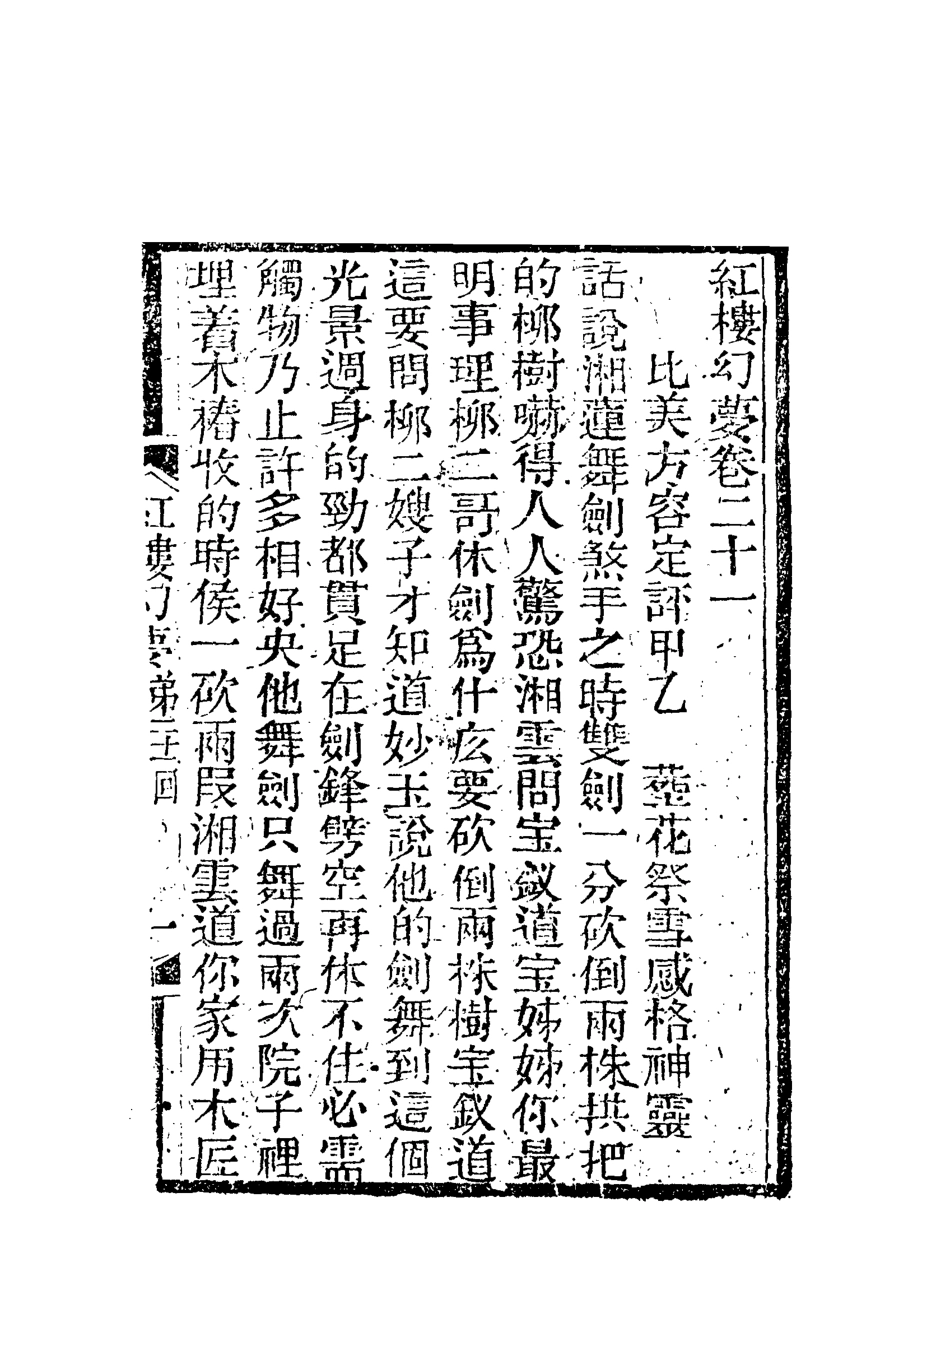 紅樓幻夢卷二十一
比美方容定評甲乙　葬花祭雪感格神靈
話說湘蓮舞劍煞手之時雙劍一分砍倒兩株拱把
的柳樹嚇得人人驚恐湘雲問宝釵道宝姊姊你最
明事理柳二哥休劍爲什庅要砍倒兩株樹宝釵道
這要問柳二嫂子才知道妙玉說他的劍舞到這個
光景週身的勁都貫足在劍鋒劈空再休不住必需
觸物乃止許多相好央他舞劍只舞過兩次院子裡
埋着木樁收的時侯一砍兩段湘雲道你家用木匠
紅樓幻夢第囬　一